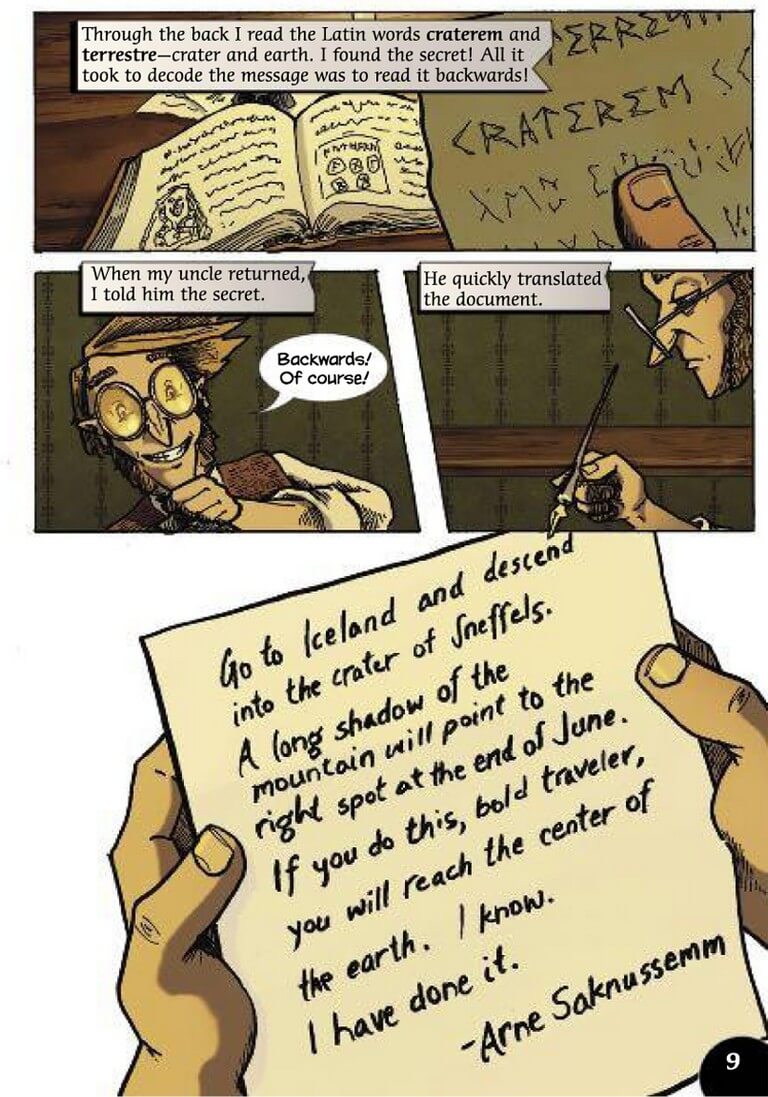 Through the back I read the Latin words craterem and
terrestre—crater and earth. I found the secret! All it
took to decode the message was to read it backwards!
CRATEREM
When my uncle returned,
I told him the secret.
Backwards!
Of course!
He quickly translated
the document.
Go to Iceland and descend
into the crater of Sneffels.
A long shadow of the
mountain will point to the
right spot at the end of June.
If you do this, bold traveler,
you will reach the center of
the earth. I know.
I have done it.
-Arne Saknussemm
9